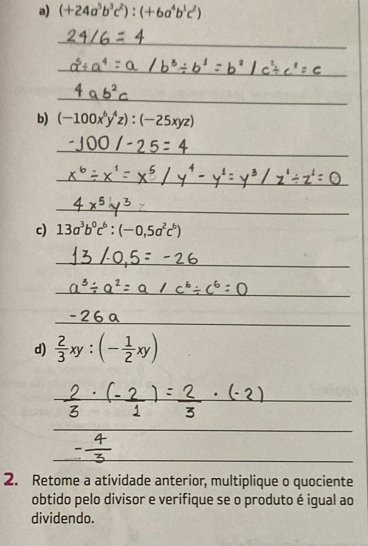 a) (+24a⁵b³c²) : (+6a⁴b¹c²)
24/6 = 4
a⁵÷a⁴ = a / b³÷b¹ = b² / c²÷c¹ = c
4ab²c
b) (−100x⁶y⁴z) : (−25xyz)
-100/-25 = 4
x⁶÷x¹ = x⁵/y⁴-y¹=y³/z¹÷z¹=0
4x⁵y³
c) 13a³b⁰c⁶ : (−0,5a²c⁶)
13/-0,5 = -26
a³÷a² = a / c⁶÷c⁶ = 0
-26a
d) 2/3 xy : (−1/2 xy)
2/3 · (-2/1) = 2/3 · (-2)
-4/3
2. Retome a atividade anterior, multiplique o quociente
obtido pelo divisor e verifique se o produto é igual ao
dividendo.